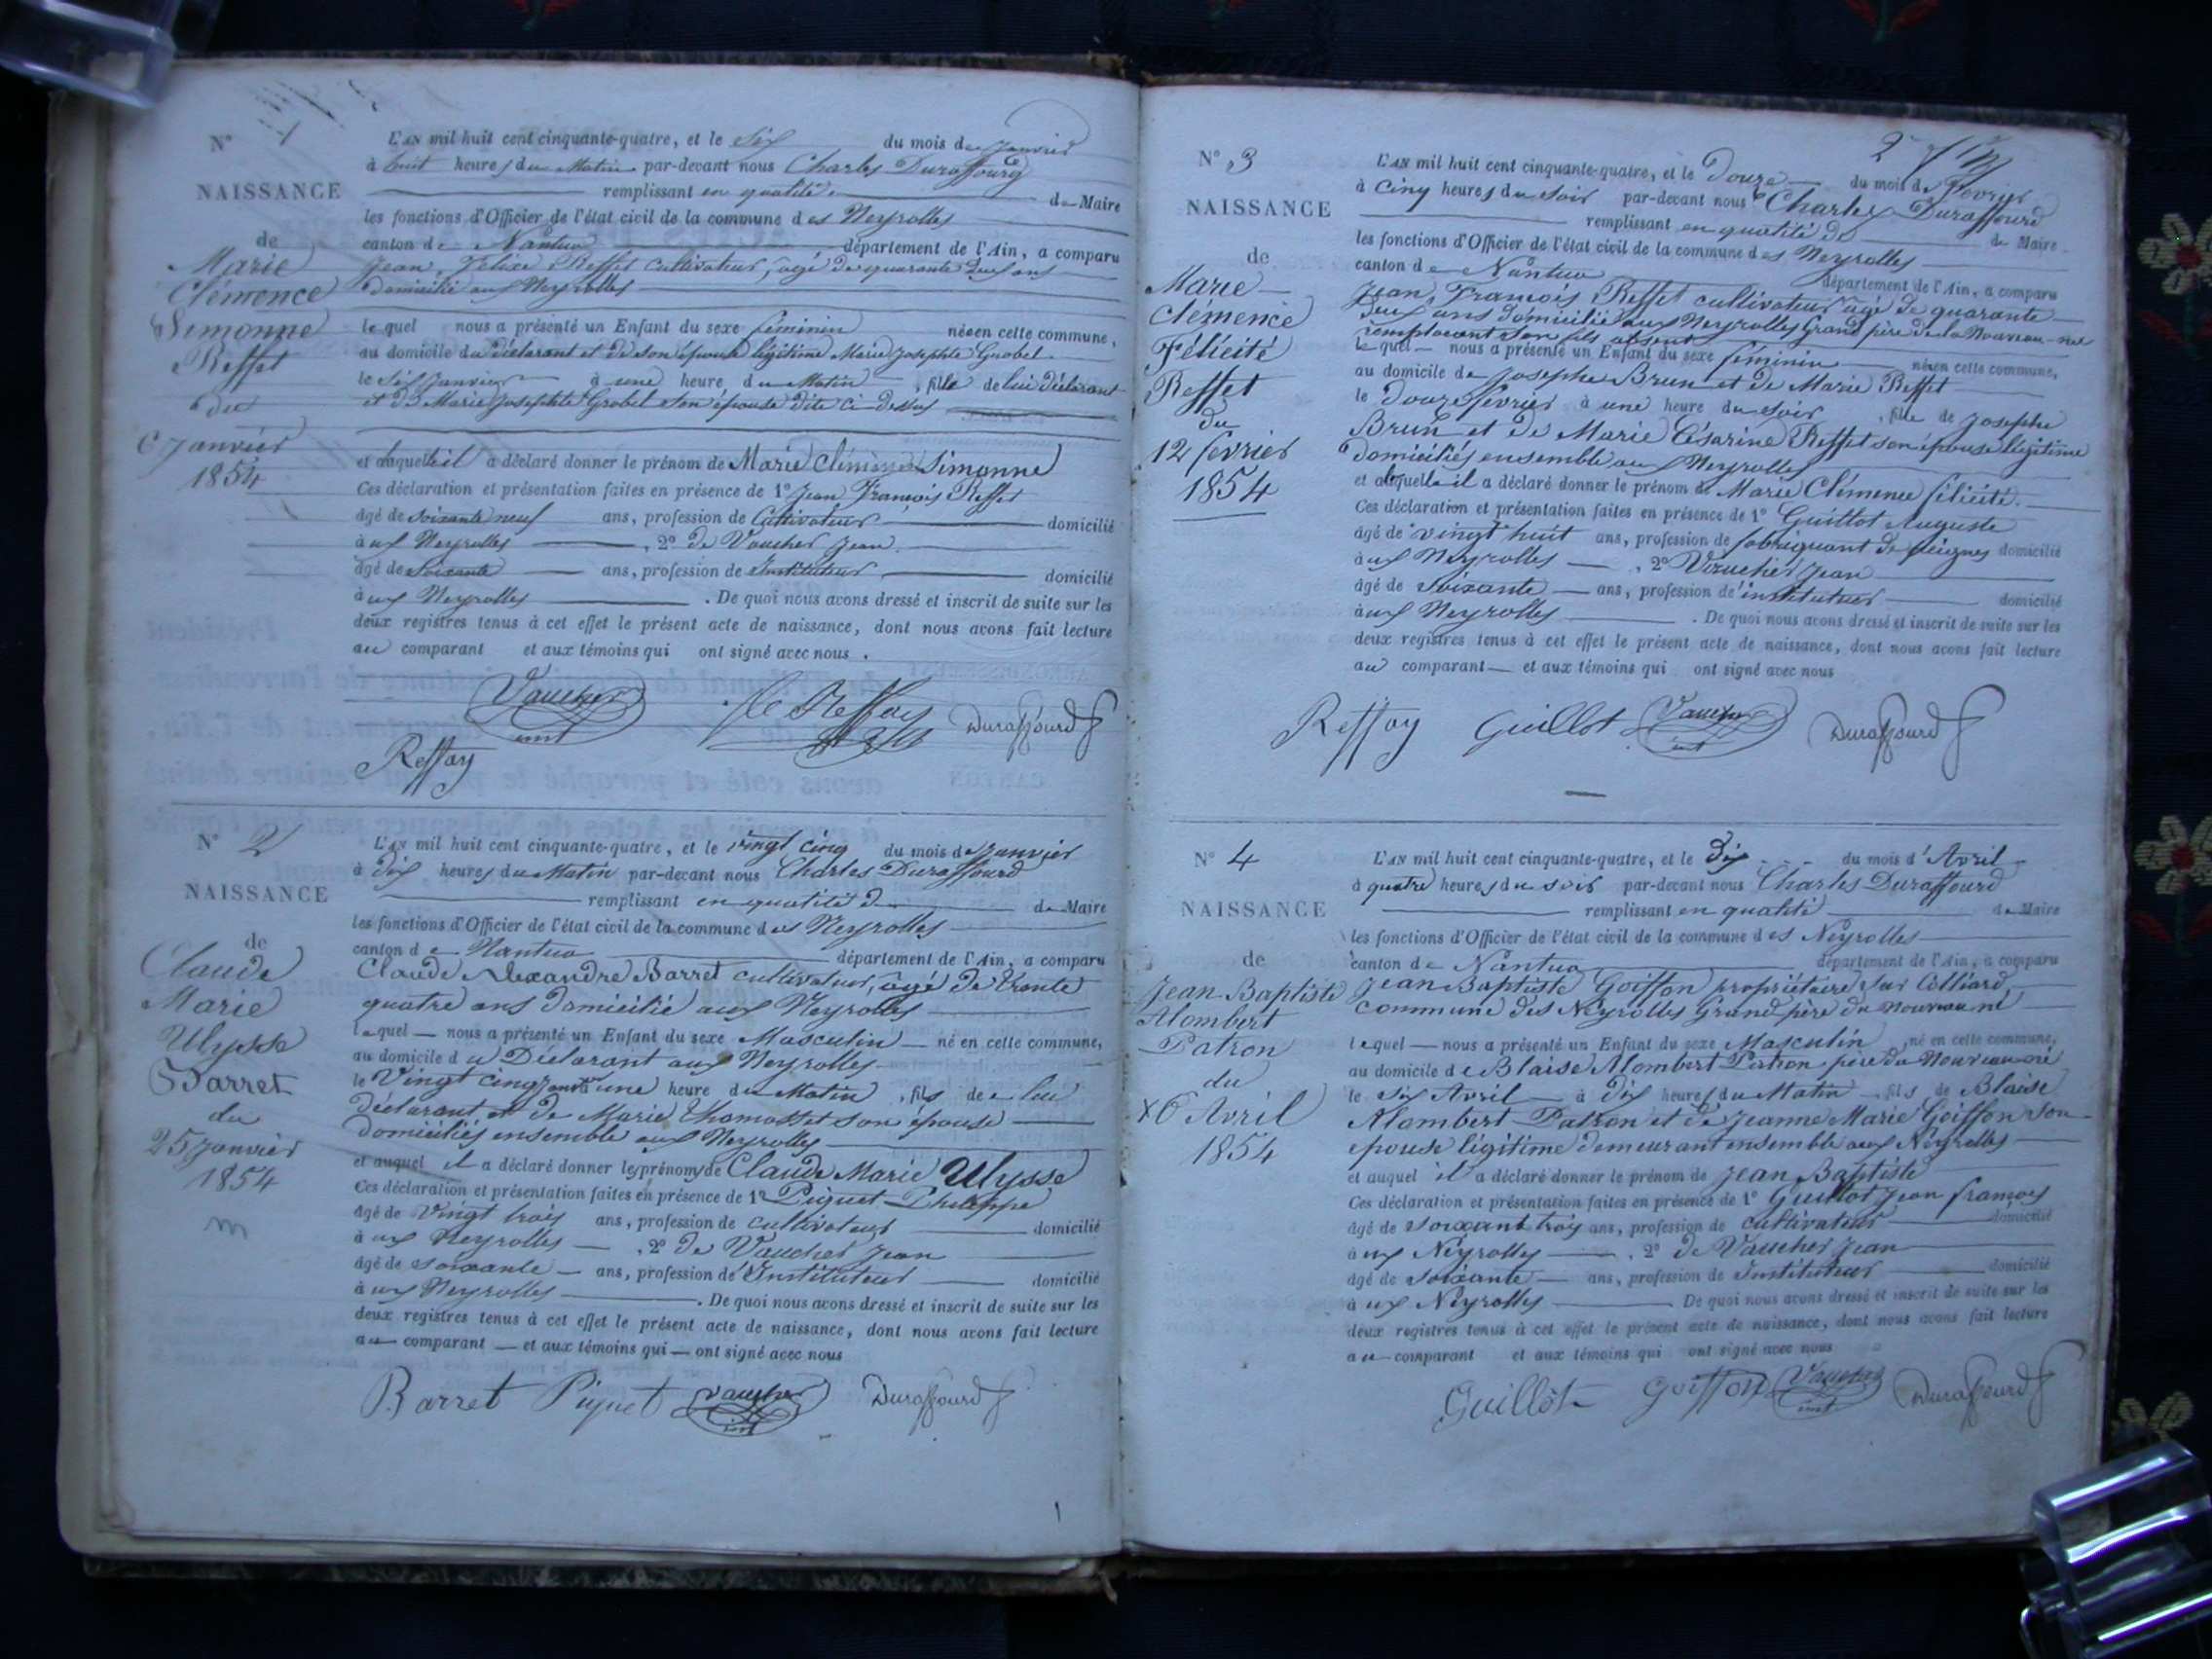 N° 1
NAISSANCE
de
Marie
Clémence
Simonne
Reffet
du
6 Janvier
1854
L'AN mil huit cent cinquante-quatre, et le Six du mois de Janvier
à huit heures du Matin par-devant nous Charles Duraffourg
remplissant en qualité de Maire
les fonctions d'Officier de l'état civil de la commune des Neyrolles
canton de Nantua département de l'Ain, a comparu
Jean, Félixe Reffet cultivateur, agé de quarante deux ans
domicilié aux Neyrolles
lequel nous a présenté un Enfant du sexe féminin née en cette commune,
au domicile du déclarant et de son épouse légitime Marie Josephte Grobet
le Six Janvier à une heure du Matin, fille de lui déclarant
et de Marie Josephte Grobet son épouse dite ci-dessus
et à laquelle il a déclaré donner le prénom de Marie Clémence Simonne
Ces déclaration et présentation faites en présence de 1° Jean François Reffet
âgé de soixante neuf ans, profession de Cultivateur domicilié
à ux Neyrolles, 2° de Vaucher Jean
âgé de Soixante ans, profession de Instituteur domicilié
à ux Neyrolles. De quoi nous avons dressé et inscrit de suite sur les
deux registres tenus à cet effet le présent acte de naissance, dont nous avons fait lecture
au comparant et aux témoins qui ont signé avec nous.
Vaucher
inst
Duraffourd
Reffay
N° 2
NAISSANCE
de
Claude
Marie
Ulysse
Barret
du
25 Janvier
1854
L'AN mil huit cent cinquante-quatre, et le vingt cinq du mois de Janvier
à Dix heures du Matin par-devant nous Charles Duraffourd
remplissant en qualité de Maire
les fonctions d'Officier de l'état civil de la commune des Neyrolles
canton de Nantua département de l'Ain, a comparu
Claude Alexandre Barret cultivateur, agé de trente
quatre ans domicilié aux Neyrolles
lequel nous a présenté un Enfant du sexe Masculin né en cette commune,
au domicile du Déclarant aux Neyrolles
le Vingt cinq janvier à une heure du Matin, fils de lui
déclarant et de Marie Thomasset son épouse
domiciliés ensemble aux Neyrolles
et auquel il a déclaré donner les prénoms de Claude Marie Ulysse
Ces déclaration et présentation faites en présence de 1° Piquet Philippe
âgé de vingt trois ans, profession de cultivateur domicilié
à ux Neyrolles, 2° de Vaucher Jean
âgé de soixante ans, profession de Instituteur domicilié
à ux Neyrolles. De quoi nous avons dressé et inscrit de suite sur les
deux registres tenus à cet effet le présent acte de naissance, dont nous avons fait lecture
au comparant et aux témoins qui ont signé avec nous
Barret Piquet Vaucher inst Duraffourd
N° 3
NAISSANCE
de
Marie
Clémence
Félicité
Reffet
du
12 février
1854
L'AN mil huit cent cinquante-quatre, et le Douze du mois de Fevrier
à cinq heures du soir par-devant nous Charles Duraffourd
remplissant en qualité de Maire
les fonctions d'Officier de l'état civil de la commune des Neyrolles
canton de Nantua département de l'Ain, a comparu
Jean, François Reffet cultivateur agé de quarante
deux ans domicilié aux Neyrolles Grand père de la Nouveau-née
remplacant son fils absent
lequel nous a présenté un Enfant du sexe féminin née en cette commune,
au domicile de Josephe Brun et de Marie Reffet
le Douze fevrier à une heure du soir, fille de Josephe
Brun et de Marie Césarine Reffet son épouse légitime
domiciliés ensemble aux Neyrolles
et à laquelle il a déclaré donner le prénom de Marie Clémence félicité.
Ces déclaration et présentation faites en présence de 1° Guillot Auguste
âgé de vingt huit ans, profession de fabriquant de peignes domicilié
à ux Neyrolles, 2° Vaucher Jean
âgé de Soixante ans, profession d'instituteur domicilié
à ux Neyrolles. De quoi nous avons dressé et inscrit de suite sur les
deux registres tenus à cet effet le présent acte de naissance, dont nous avons fait lecture
au comparant et aux témoins qui ont signé avec nous
Reffay Guillot Vaucher inst Duraffourd
N° 4
NAISSANCE
de
Jean Baptiste
Alombert
Patron
du
6 Avril
1854
L'AN mil huit cent cinquante-quatre, et le Dix du mois d'Avril
à quatre heures du soir par-devant nous Charles Duraffourd
remplissant en qualité de Maire
les fonctions d'Officier de l'état civil de la commune des Neyrolles
canton de Nantua département de l'Ain, a comparu
Jean Baptiste Goiffon propriétaire sur Colliard,
commune des Neyrolles Grand père du nouveau né
lequel nous a présenté un Enfant du sexe Masculin, né en cette commune,
au domicile de Blaise Alombert Patron père du Nouveau né
le Six Avril à Dix heures du Matin fils de Blaise
Alombert Patron et de Jeanne Marie Goiffon son
epouse légitime demeurant ensemble aux Neyrolles
et auquel il a déclaré donner le prénom de Jean Baptiste
Ces déclaration et présentation faites en présence de 1° Guillot Jean françois
âgé de soixante trois ans, profession de cultivateur domicilié
à ux Neyrolles, 2° de Vaucher Jean
âgé de soixante ans, profession de Instituteur domicilié
à ux Neyrolles De quoi nous avons dressé et inscrit de suite sur les
deux registres tenus à cet effet le présent acte de naissance, dont nous avons fait lecture
au comparant et aux témoins qui ont signé avec nous
Guillot Goiffon Vaucher inst Duraffourd